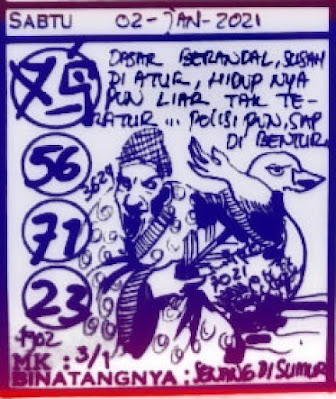 SABTU 02-JAN-2021
DASAR BERANDAL, SUSAH
DI ATUR, HIDUP NYA
PUN LIAR TAK TE-
RATUR... POLISI PUN, SIAP
DI BENTUR
56
71
23
3629
7021
1902
MK : 3/1
BINATANGNYA : SENANG DI SUMUR